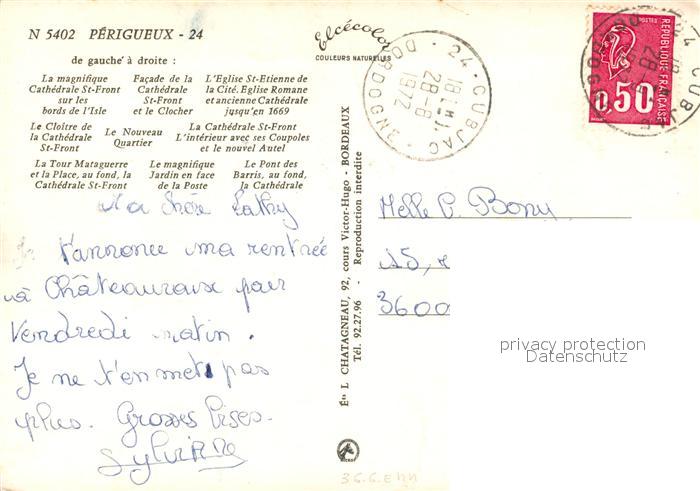 N 5402 PÉRIGUEUX - 24
de gauche à droite :
La magnifique
Cathédrale St-Front
sur les
bords de l'Isle
Façade de la
Cathédrale
St-Front
et le Clocher
L'Eglise St-Etienne de
la Cité. Eglise Romane
et ancienne Cathédrale
jusqu'en 1669
Le Cloître de
la Cathédrale
St-Front
Le Nouveau
Quartier
La Cathédrale St-Front
L'intérieur avec ses Coupoles
et le nouvel Autel
La Tour Mataguerre
et la Place, au fond, la
Cathédrale St-Front
Le magnifique
Jardin en face
de la Poste
Le Pont des
Barris, au fond,
la Cathédrale
Ma chère Cathy
Je t'annonce ma rentrée
à Châteauroux pour
Vendredi matin.
Je ne t'en mets pas
plus. Grosses bises.
Sylviane
Elcécolor
COULEURS NATURELLES
Éts L. CHATAGNEAU, 92, cours Victor-Hugo - BORDEAUX
Tél. 92.27.96 - Reproduction interdite
24 - CUBJAC - DORDOGNE
18H
28-8
1972
POSTES
RÉPUBLIQUE FRANÇAISE
0,50
Melle C. Bonu
15, r
3600
privacy protection
Datenschutz